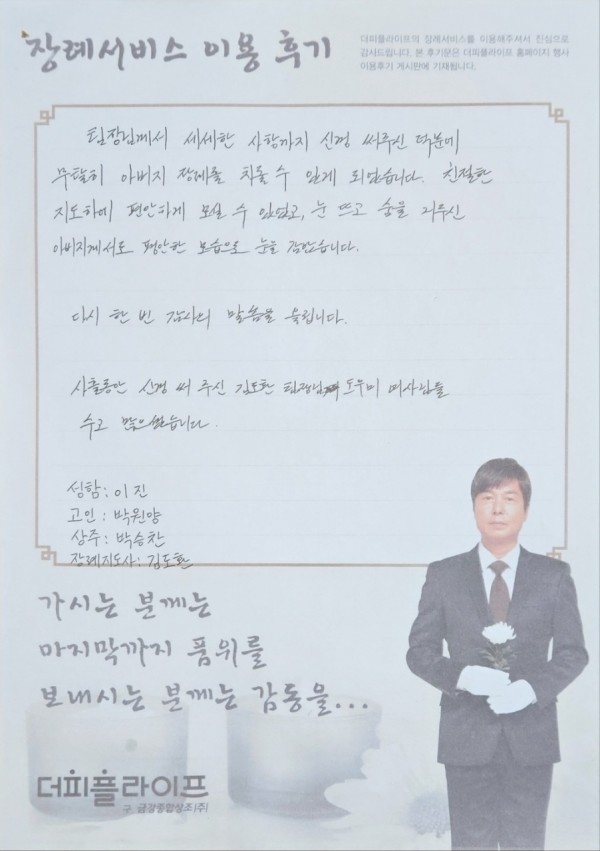 장례서비스 이용 후기
더피플라이프의 장례서비스를 이용해주셔서 진심으로
감사드립니다. 본 후기문은 더피플라이프 홈페이지 행사
이용후기 게시판에 기재됩니다.
팀장님께서 세세한 사항까지 신경 써주신 덕분에
무탈히 아버지 장례를 치룰 수 있게 되었습니다. 친절한
지도하에 편안하게 모실 수 있었고, 눈 뜨고 숨을 거두신
아버지께서도 편안한 모습으로 눈을 감았습니다.
다시 한 번 감사의 말씀을 올립니다.
사흘동안 신경 써 주신 김도환 팀장님 도우미 여사님들
수고 많으셨습니다.
성함 : 이진
고인 : 박원양
상주 : 박승찬
장례지도사 : 김도환
가시는 분께는
마지막까지 품위를
보내시는 분께는 감동을...
더피플라이프
구. 금강종합상조(주)